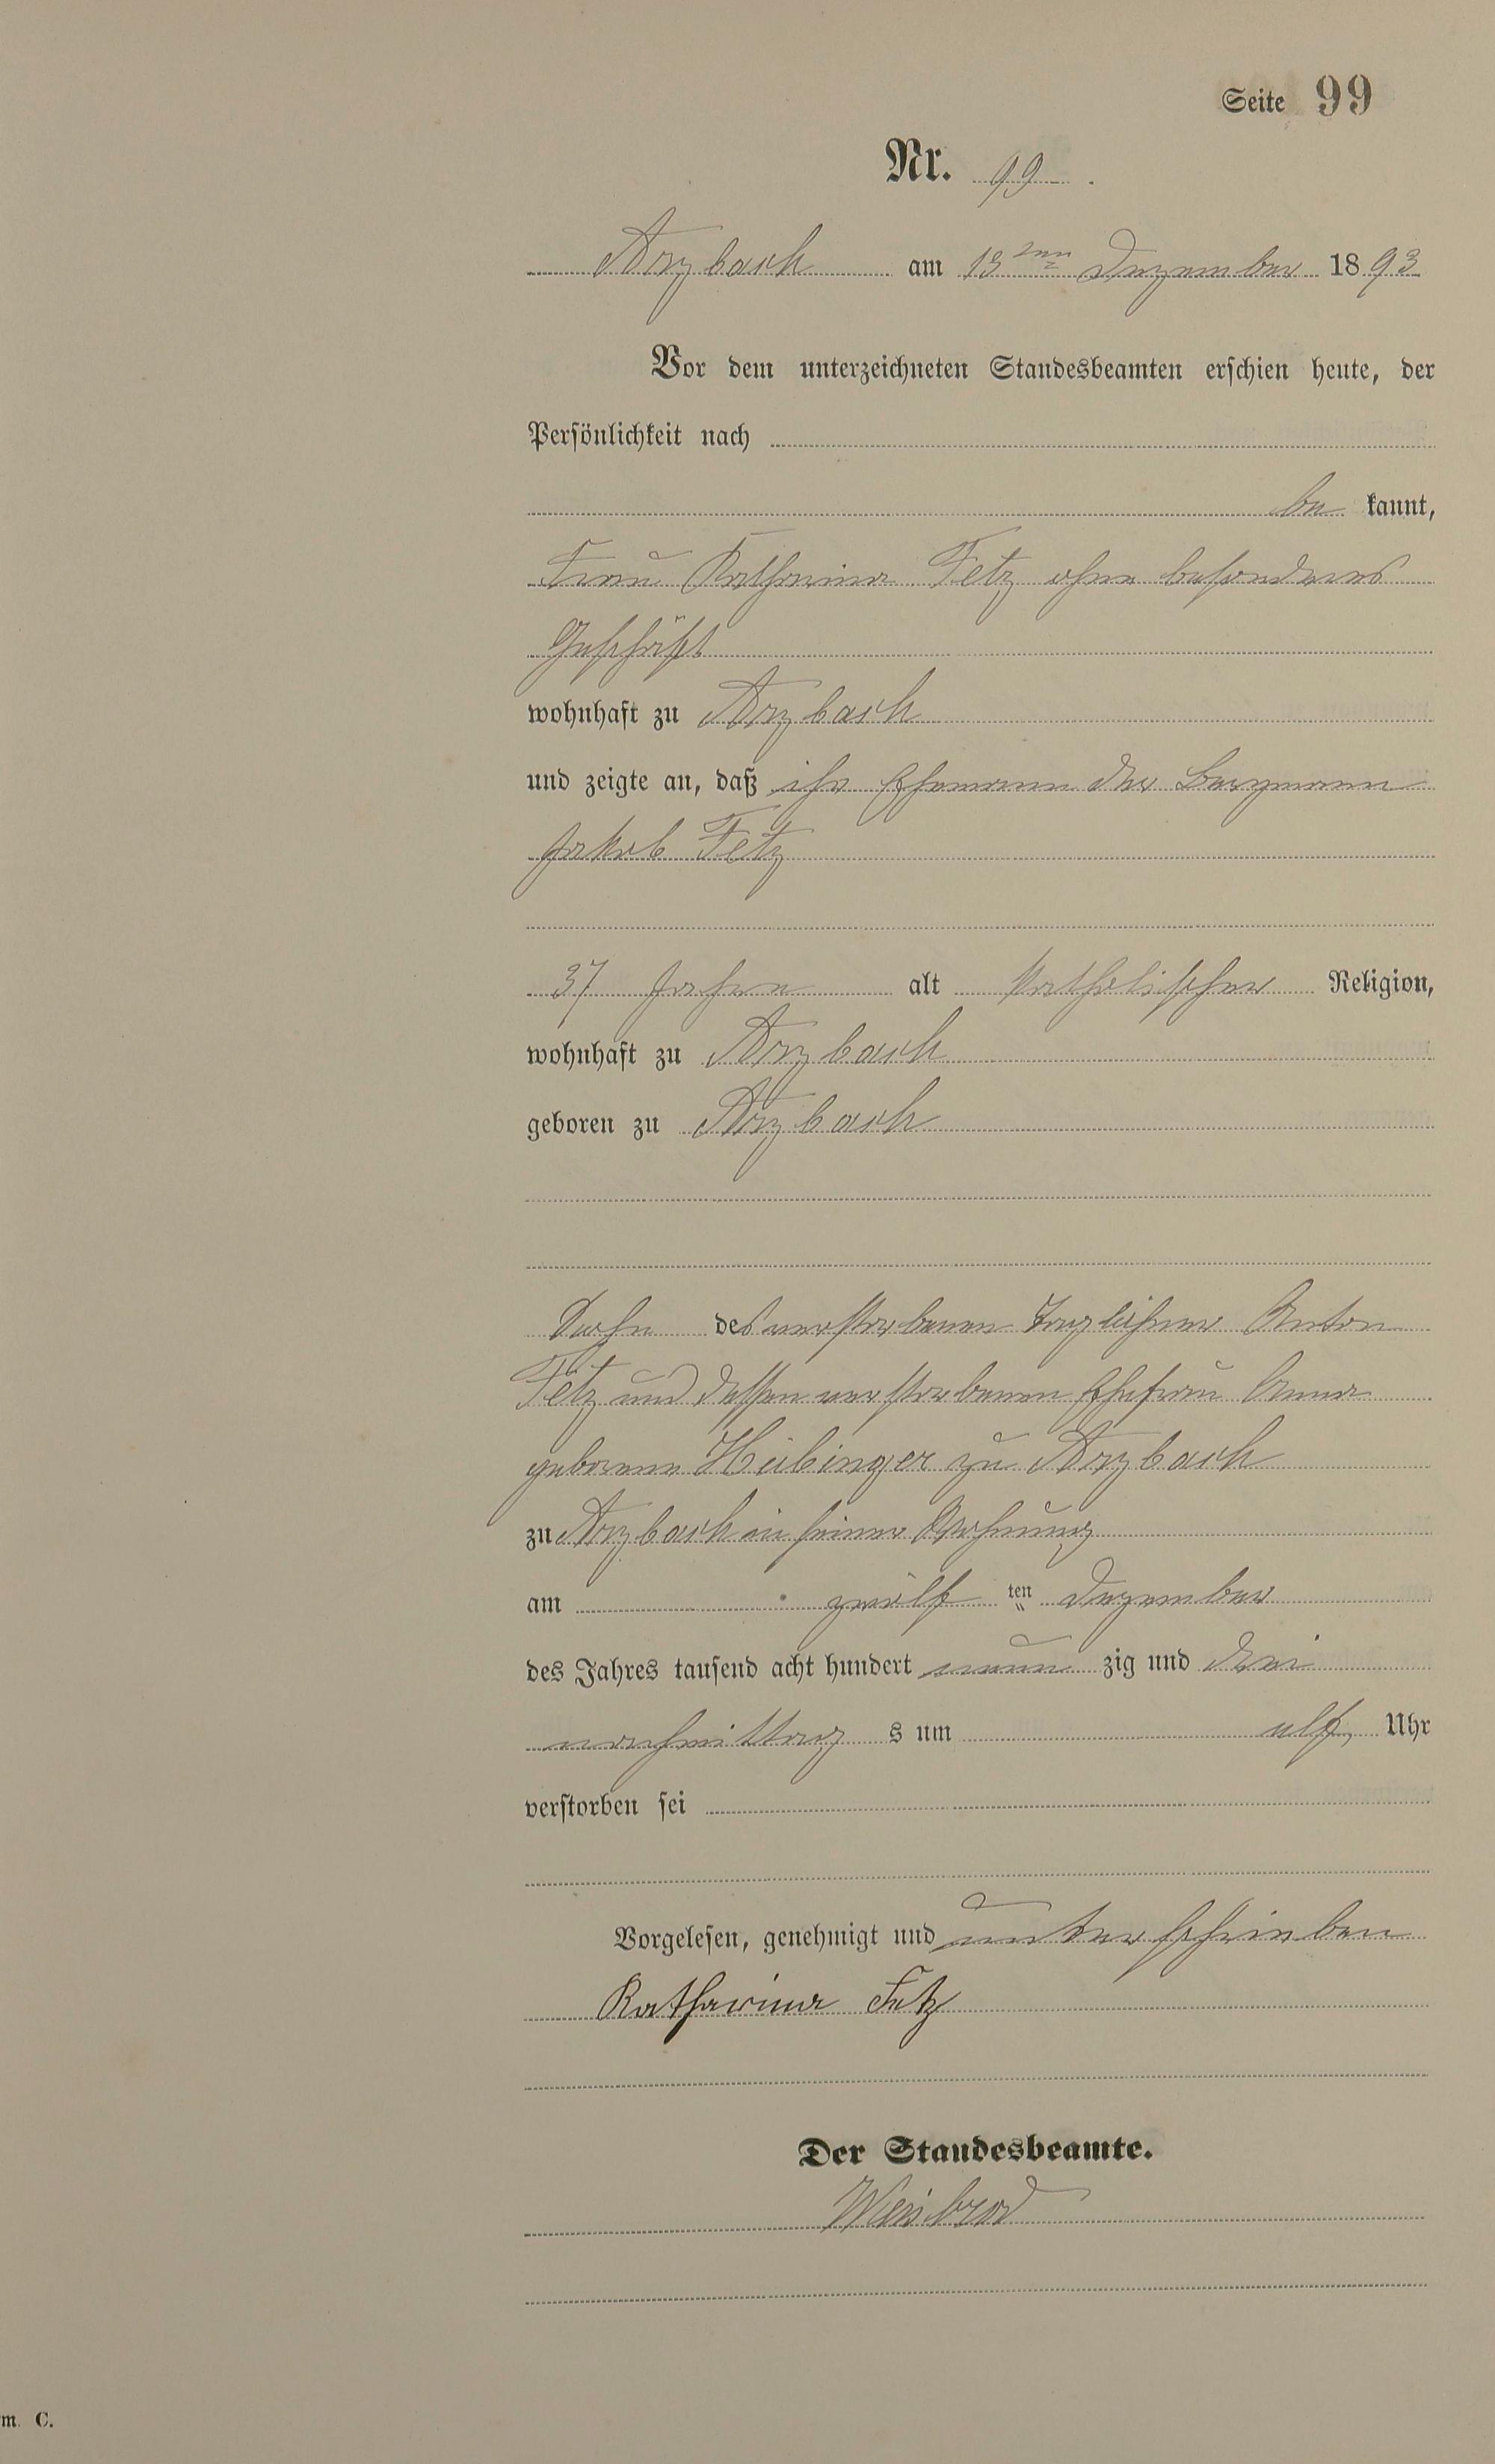 Seite 99
Nr. 99.
Arzbach am 13ten Dezember 1893
Vor dem unterzeichneten Standesbeamten erschien heute, der
Persönlichkeit nach
be kannt,
Frau Katharina Fetz ohne besonderes
Geschäft
wohnhaft zu Arzbach
und zeigte an, daß ihr Ehemann der Bergmann
Jakob Fetz
37 Jahre alt katholischer Religion,
wohnhaft zu Arzbach
geboren zu Arzbach
Sohn des verstorbenen Taglöhner Anton
Fetz und dessen verstorbenen Ehefrau Anna
geborene Hübinger zu Arzbach
zu Arzbach in seiner Wohnung
am zwölf ten Dezember
des Jahres tausend acht hundert neun zig und drei
nachmittag s um elf Uhr
verstorben sei
Vorgelesen, genehmigt und unterschrieben
Katharina Fetz
Der Standesbeamte.
Weisbrod
m. C.